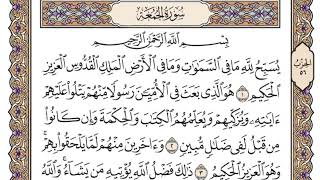 سُورَةُ الجُمُعَةِ
بِسْمِ ٱللَّهِ ٱلرَّحْمَٰنِ ٱلرَّحِيمِ
يُسَبِّحُ لِلَّهِ مَا فِى ٱلسَّمَٰوَٰتِ وَمَا فِى ٱلْأَرْضِ ٱلْمَلِكِ ٱلْقُدُّوسِ ٱلْعَزِيزِ
ٱلْحَكِيمِ ١ هُوَ ٱلَّذِى بَعَثَ فِى ٱلْأُمِّيِّـۧنَ رَسُولًا مِّنْهُمْ يَتْلُوا۟ عَلَيْهِمْ
ءَايَٰتِهِۦ وَيُزَكِّيهِمْ وَيُعَلِّمُهُمُ ٱلْكِتَٰبَ وَٱلْحِكْمَةَ وَإِن كَانُوا۟
مِن قَبْلُ لَفِى ضَلَٰلٍ مُّبِينٍ ٢ وَءَاخَرِينَ مِنْهُمْ لَمَّا يَلْحَقُوا۟ بِهِمْ
وَهُوَ ٱلْعَزِيزُ ٱلْحَكِيمُ ٣ ذَٰلِكَ فَضْلُ ٱللَّهِ يُؤْتِيهِ مَن يَشَآءُ وَٱللَّهُ
الحزب
٥٦